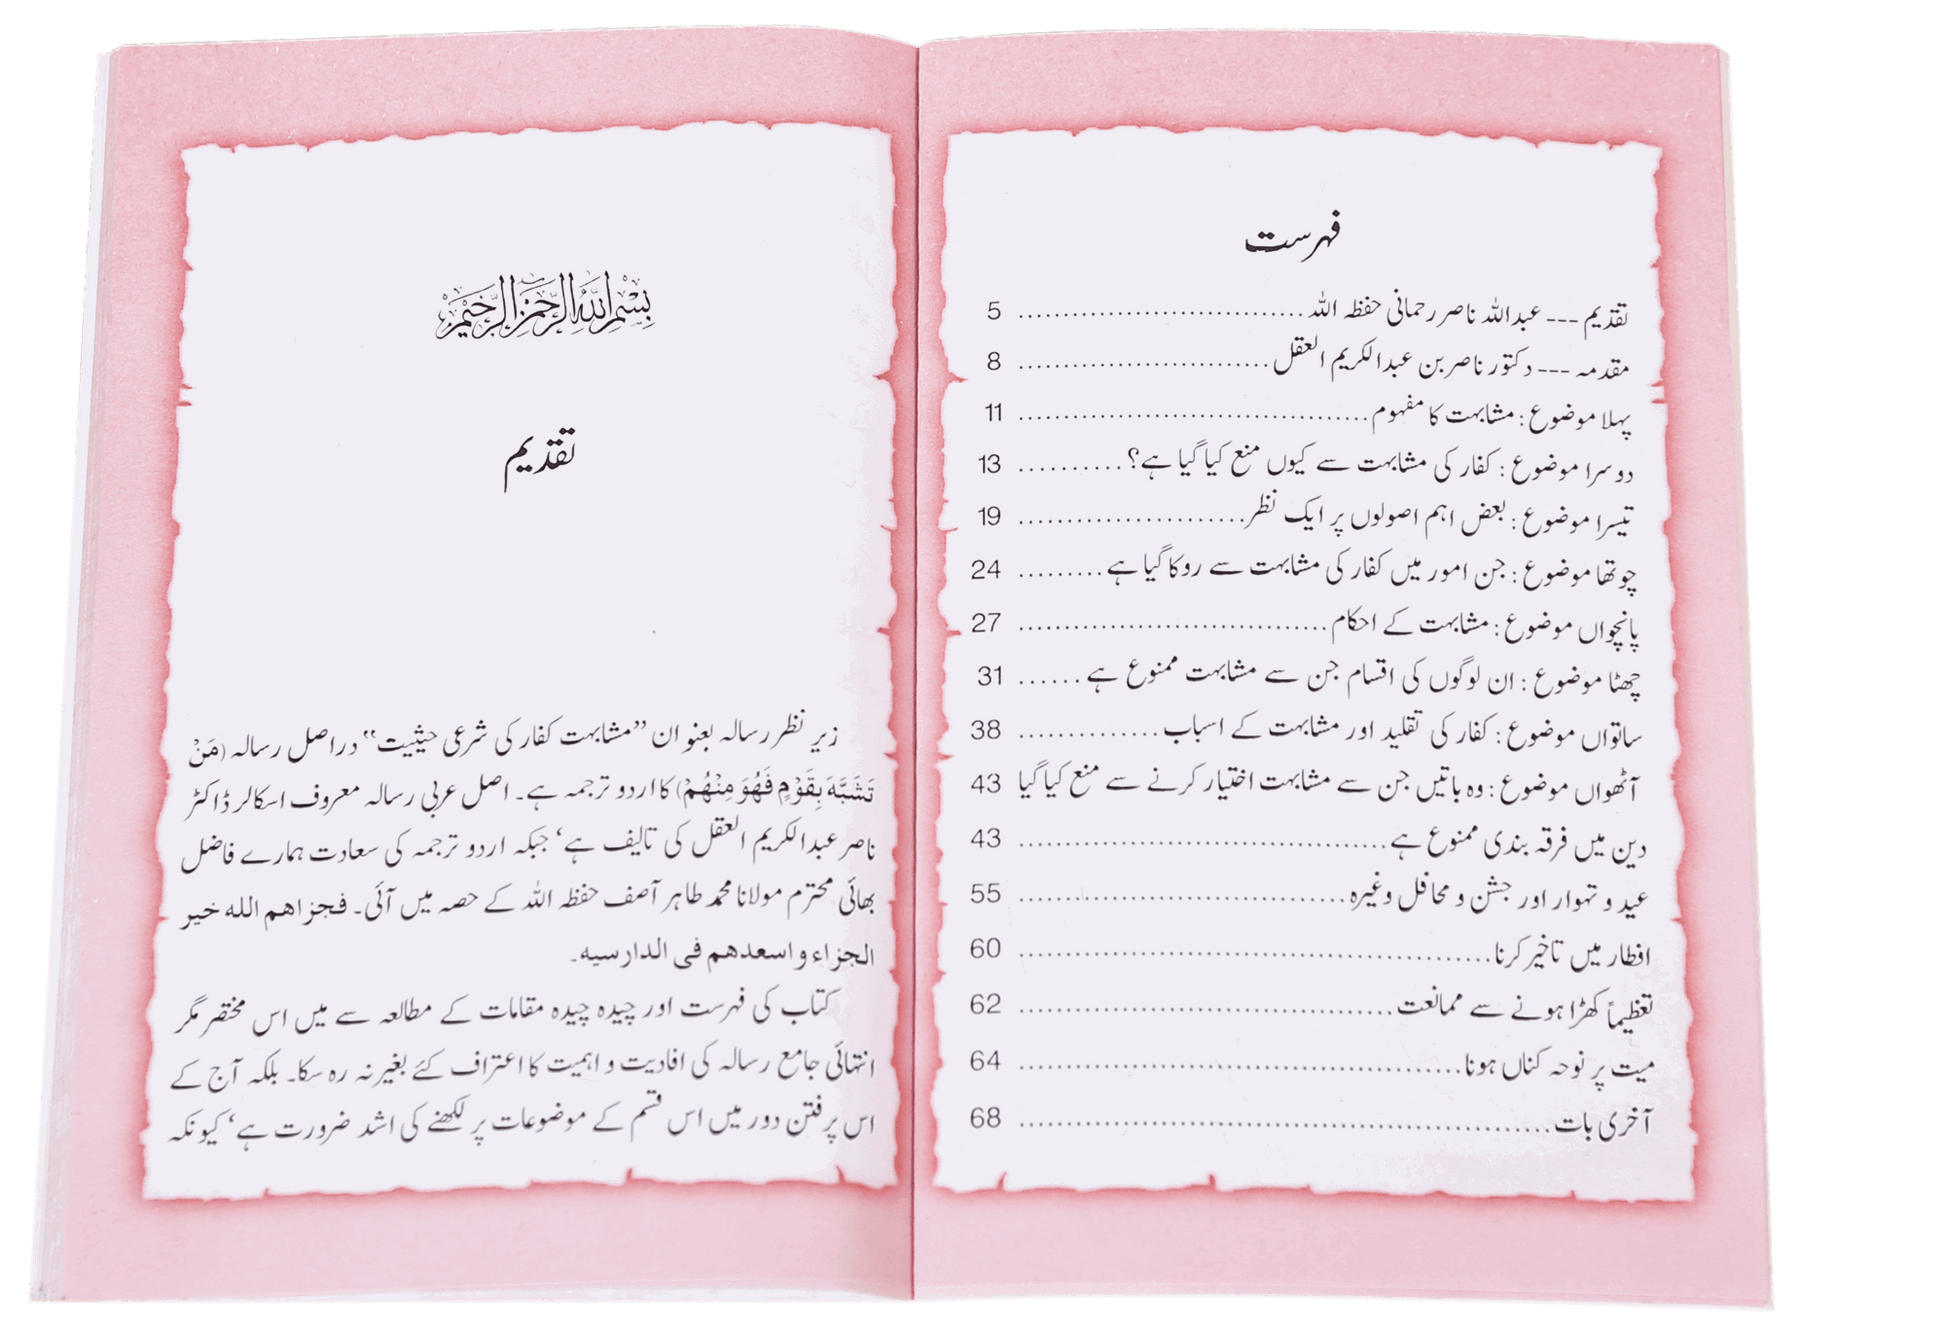 فہرست
تقدیم --- عبداللہ ناصر رحمانی حفظہ اللہ .............................. 5
مقدمہ --- دکتور ناصر بن عبدالکریم العقل ........................... 8
پہلا موضوع : مشابہت کا مفہوم ..................................... 11
دوسرا موضوع : کفار کی مشابہت سے کیوں منع کیا گیا ہے؟ .......... 13
تیسرا موضوع : بعض اہم اصولوں پر ایک نظر ........................ 19
چوتھا موضوع : جن امور میں کفار کی مشابہت سے روکا گیا ہے ......... 24
پانچواں موضوع : مشابہت کے احکام ................................. 27
چھٹا موضوع : ان لوگوں کی اقسام جن سے مشابہت ممنوع ہے ...... 31
ساتواں موضوع : کفار کی تقلید اور مشابہت کے اسباب .............. 38
آٹھواں موضوع : وہ باتیں جن سے مشابہت اختیار کرنے سے منع کیا گیا 43
دین میں فرقہ بندی ممنوع ہے ....................................... 43
عید و تہوار اور جشن و محافل وغیرہ ................................... 55
افطار میں تاخیر کرنا .................................................. 60
تعظیماً کھڑا ہونے سے ممانعت ........................................ 62
میت پر نوحہ کناں ہونا ............................................... 64
آخری بات ......................................................... 68
بِسْمِ اللّٰهِ الرَّحْمٰنِ الرَّحِيْمِ
تقدیم
زیر نظر رسالہ بعنوان ”مشابہت کفار کی شرعی حیثیت“ دراصل رسالہ (مَنْ
تَشَبَّهَ بِقَوْمٍ فَهُوَ مِنْهُمْ) کا اردو ترجمہ ہے۔ اصل عربی رسالہ معروف اسکالر ڈاکٹر
ناصر عبدالکریم العقل کی تالیف ہے‘ جبکہ اردو ترجمہ کی سعادت ہمارے فاضل
بھائی محترم مولانا محمد طاہر آصف حفظہ اللہ کے حصہ میں آئی۔ فجزاهم الله خير
الجزاء و اسعدهم فى الدارسيه۔
کتاب کی فہرست اور چیدہ چیدہ مقامات کے مطالعہ سے میں اس مختصر مگر
انتہائی جامع رسالہ کی افادیت و اہمیت کا اعتراف کئے بغیر نہ رہ سکا۔ بلکہ آج کے
اس پرفتن دور میں اس قسم کے موضوعات پر لکھنے کی اشد ضرورت ہے‘ کیونکہ